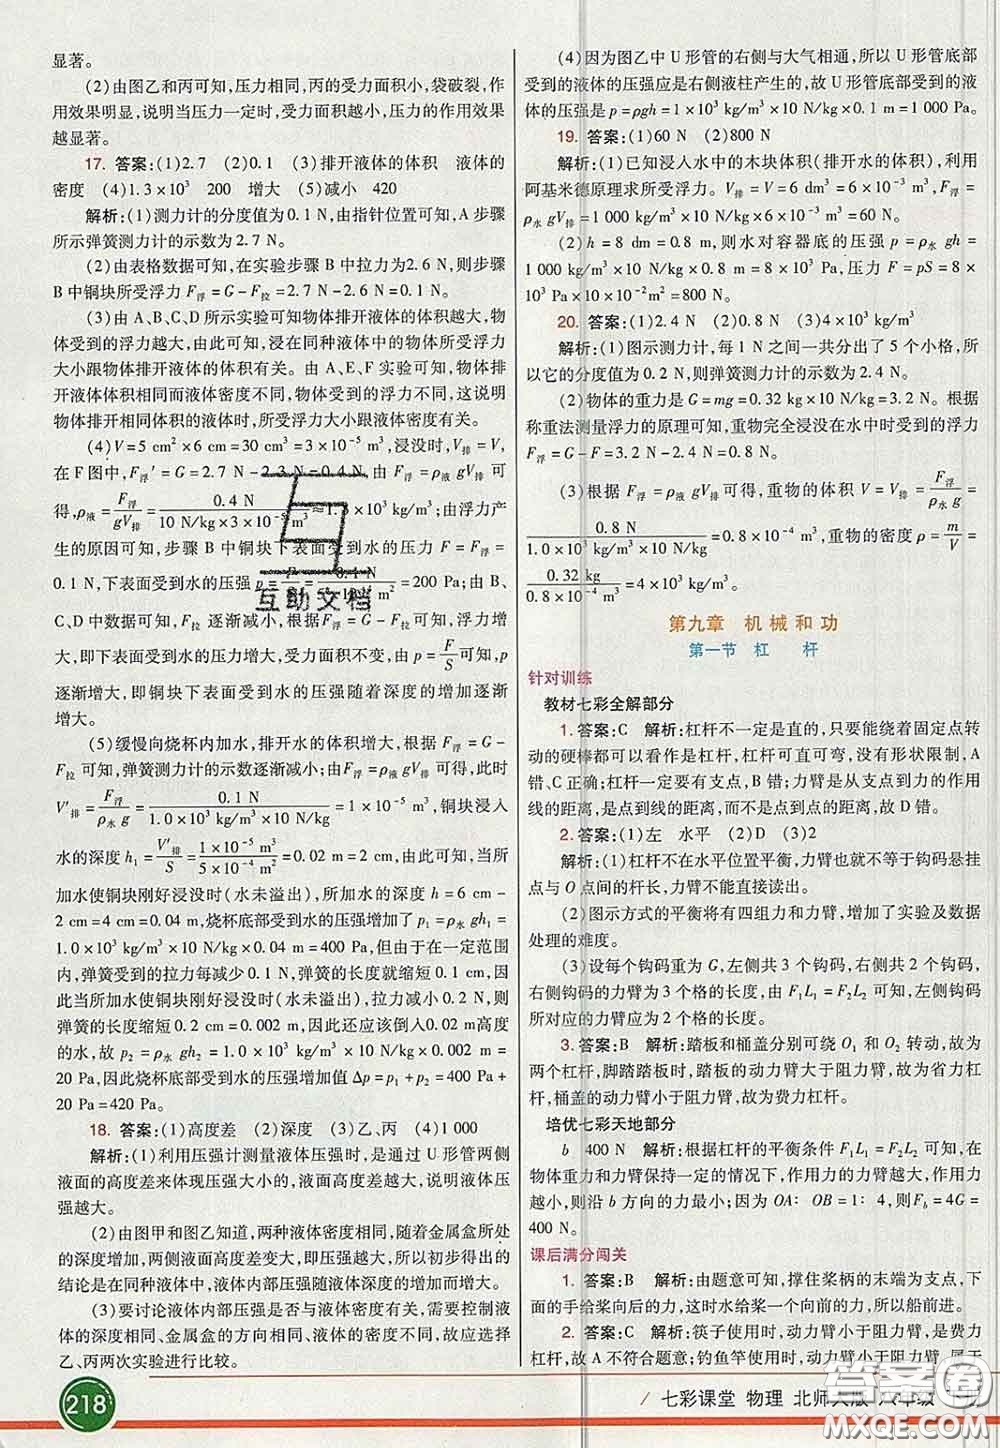 显著。
(2)由图乙和丙可知,压力相同,丙的受力面积小,袋破裂,作
用效果明显,说明当压力一定时,受力面积越小,压力的作用效果
越显著。
17. 答案:(1)2.7 (2)0.1 (3)排开液体的体积 液体的
密度 (4)1.3×10³ 200 增大 (5)减小 420
解析:(1)测力计的分度值为0.1 N,由指针位置可知,A步骤
所示弹簧测力计的示数为2.7 N。
(2)由表格数据可知,在实验步骤B中拉力为2.6 N,则步骤
B中铜块所受浮力 F浮=G-F拉=2.7 N-2.6 N=0.1 N。
(3)由A、B、C、D所示实验可知物体排开液体的体积越大,物
体受到的浮力越大,由此可知,浸在同种液体中的物体所受浮力
大小跟物体排开液体的体积有关。由A、E、F实验可知,物体
排开液体体积相同而液体密度不同,物体受到的浮力不同,这说明
物体排开相同体积的液体时,所受浮力大小跟液体密度有关。
(4)V=5 cm²×6 cm=30 cm³=3×10⁻⁵ m³,浸没时,V排=V,
在F图中,F浮′=G=2.7 N-2.3 N=0.4 N,由 F浮=ρ液 gV排 可
得,ρ液=F浮/gV排=0.4 N/(10 N/kg×3×10⁻⁵ m³)≈1.3×10³ kg/m³;由浮力产
生的原因可知,步骤B中铜块下表面受到水的压力 F=F浮=
0.1 N,下表面受到水的压强 p=F/S=0.1 N/(5×10⁻⁴ m²)=200 Pa;由B、
C、D中数据可知,F拉 逐渐减小,根据 F浮=G-F拉 可知,浮力增
大,即下表面受到水的压力增大,S大小不变,由 p=F/S 可知,p
逐渐增大,即铜块下表面受到水的压强随着深度的增大逐渐
增大。
(5)缓慢向烧杯内加水,排开水的体积增大,根据 F浮=G-
F拉 可知,弹簧测力计的示数逐渐减小;由 F浮=ρ液 gV排 可得,此时
V′排=F浮/ρ水 g=0.1 N/(1.0×10³ kg/m³×10 N/kg)=1×10⁻⁵ m³,铜块浸入
水的深度 h₁=V′排/S=1×10⁻⁵ m³/5×10⁻⁴ m²=0.02 m=2 cm,由此可知,当所
加水使铜块刚好浸没时(水未溢出),所加水的深度 h=6 cm-
2 cm=4 cm=0.04 m,烧杯底部受到水的压强增加了 p₁=ρ水 gh₁=
1.0×10³ kg/m³×10 N/kg×0.04 m=400 Pa,但由于在一定范围
内,弹簧受到的拉力每减少0.1 N,弹簧的长度就缩短0.1 cm,
因此当所加水使铜块刚好浸没时(水未溢出),拉力减小0.2 N,则
弹簧的长度缩短0.2 cm=0.002 m,因此还应该倒入0.002 m高度
的水,故 p₂=ρ水 gh₂=1.0×10³ kg/m³×10 N/kg×0.002 m=
20 Pa,因此烧杯底部受到水的压强增加值 Δp=p₁+p₂=400 Pa+
20 Pa=420 Pa。
18. 答案:(1)高度差 (2)深度 (3)乙、丙 (4)1 000
解析:(1)利用压强计测量液体压强时,是通过U形管两侧
液面的高度差来体现压强大小的,液面高度差越大,说明液体压
强越大。
(2)由图甲和图乙知道,两种液体密度相同,随着金属盒所处
的深度增加,两侧液面高度差变大,即压强变大,即初步得出的
结论是在同种液体中,液体内部压强随液体深度的增加而增大。
(3)要讨论液体内部压强是否与液体密度有关,需要控制液
体的深度相同、金属盒的方向相同、液体的密度不同,故选择
乙、丙两次实验进行比较。
(4)因为图乙中U形管的右侧与大气相通,所以U形管底部
受到的液体的压强应是右侧液柱产生的,故U形管底部受到的液
体的压强是 p=ρgh=1×10³ kg/m³×10 N/kg×0.1 m=1 000 Pa。
19. 答案:(1)60 N (2)800 N
解析:(1)已知浸入水中的木块体积(排开水的体积),利用
阿基米德原理求所受浮力。V排=V=6 dm³=6×10⁻³ m³,F浮=
ρ水 gV排=1 000 kg/m³×10 N/kg×6×10⁻³ m³=60 N。
(2)h=8 dm=0.8 m,则水对容器底的压强 p=ρ水 gh=
1 000 kg/m³×10 N/kg×0.8 m=8×10³ Pa,压力 F=pS=8×
10³ Pa×10×10⁻² m²=800 N。
20. 答案:(1)2.4 N (2)0.8 N (3)4×10³ kg/m³
解析:(1)图示测力计,每1 N之间一共分出了5个小格,所
以它的分度值为0.2 N,则弹簧测力计的示数为2.4 N。
(2)物体的重力是 G=mg=0.32 kg×10 N/kg=3.2 N。根据
称重法测量浮力的原理可知,重物完全浸没在水中时受到的浮力
F浮=G-F=3.2 N-2.4 N=0.8 N。
(3)根据 F浮=ρ水 gV排 可得,重物的体积 V=V排=F浮/ρ水 g=
0.8 N/(1.0×10³ kg/m³×10 N/kg)=0.8×10⁻⁴ m³,重物的密度 ρ=m/V=
0.32 kg/0.8×10⁻⁴ m³=4×10³ kg/m³。
第九章 机械和功
第一节 杠 杆
针对训练
教材七彩全解部分
1. 答案:C 解析:杠杆不一定是直的,只要能绕着固定点转
动的硬棒都可以看作是杠杆,杠杆可直可弯,没有形状限制,A
错、C正确;杠杆一定要有支点,B错;力臂是从支点到力的作用
线的距离,是点到线的距离,而不是点到点的距离,故D错。
2. 答案:(1)左 水平 (2)D (3)2
解析:(1)杠杆不在水平位置平衡,力臂也就不等于钩码悬挂
点与O点间的杆长,力臂不能直接读出。
(2)图示方式的平衡将有四组力和力臂,增加了实验及数据
处理的难度。
(3)设每个钩码重为G,左侧共3个钩码,右侧共2个钩码,
右侧钩码的力臂为3个格的长度,由 F₁L₁=F₂L₂ 可知,左侧钩码
所对应的力臂应为2个格的长度。
3. 答案:B 解析:踏板和桶盖分别可绕 O₁ 和 O₂ 转动,故这
两个都是杠杆,脚踏踏板时,踏板的动力臂大于阻力臂,故为省力杠
杆,桶盖的动力臂小于阻力臂,故为费力杠杆。
培优七彩天地部分
b 400 N 解析:根据杠杆的平衡条件 F₁L₁=F₂L₂ 可知,在
物体重力和力臂保持一定的情况下,作用力的力臂越大,作用力越
小,则沿 b 方向的力最小;因为 OA∶OB=1∶4,则 Fb=4G=
400 N。
课后满分闯关
1. 答案:B 解析:由题意可知,撑住桨柄的末端为支点,下
面的手给桨向后的力,这时水给桨一个向前的力,所以船前进。
2. 答案:C 解析:筷子使用时,动力臂小于阻力臂,是费力
杠杆,故A不符合题意;钓鱼竿使用时,动力臂小于阻力臂,属于
互助文档
答案圈
218
七彩课堂 物理 北师大版